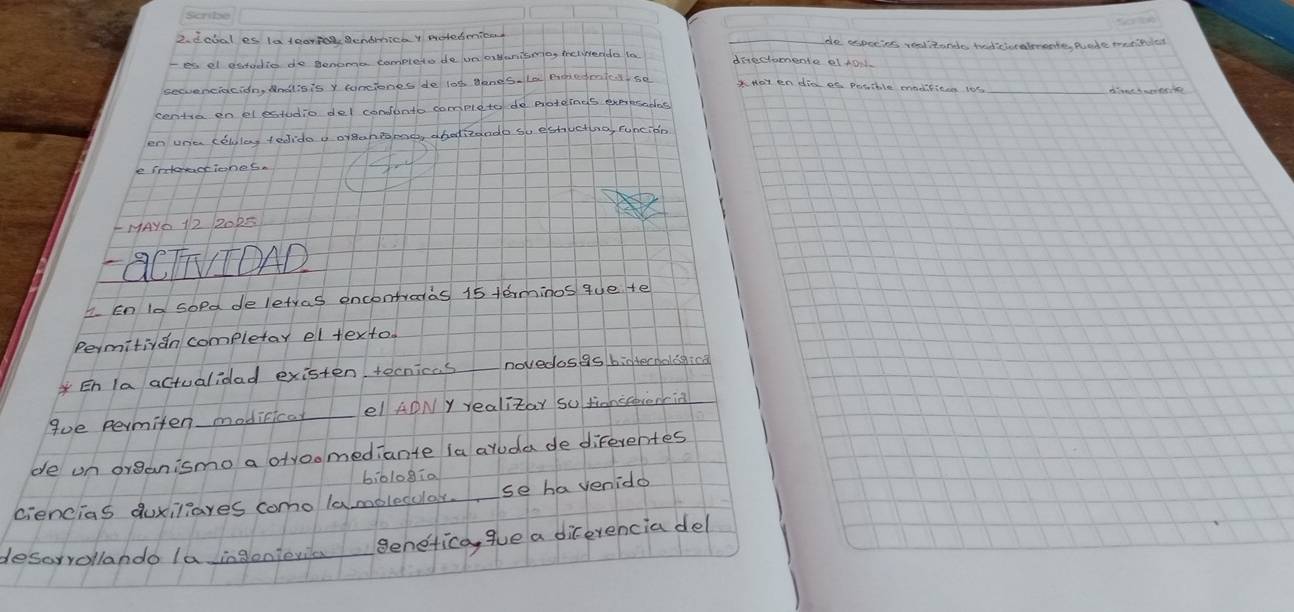 Scribe
2. ¿cúal es la genómica y proteómica
- es el estudio de genoma completo de un organismo, incluyendo la
secuenciación, análisis y funciones de los genes. La proteómica, se
centra en el estudio del conjunto completo de proteínas expresadas
en una célula, tejido u organismo, analizando su estructura, función
e interacciones.
- MAYO 12 2025
- ACTIVIDAD
1 En la sopa de letras encontrarás 15 términos que te
Permitirán completar el texto.
* En la actualidad existen tecnicas novedosas biotecnológica
que permiten modificar el ADN y realizar su transferencia
de un organismo a otro. mediante la ayuda de diferentes
biología
ciencias auxiliares como la molecular. se ha venido
desarrollando la ingenieria genética, que a diferencia del
de especies realizando tradicionalmente, Puede manipular
directamente el ADN.
* Hoy en dia es posible modificar los directamente